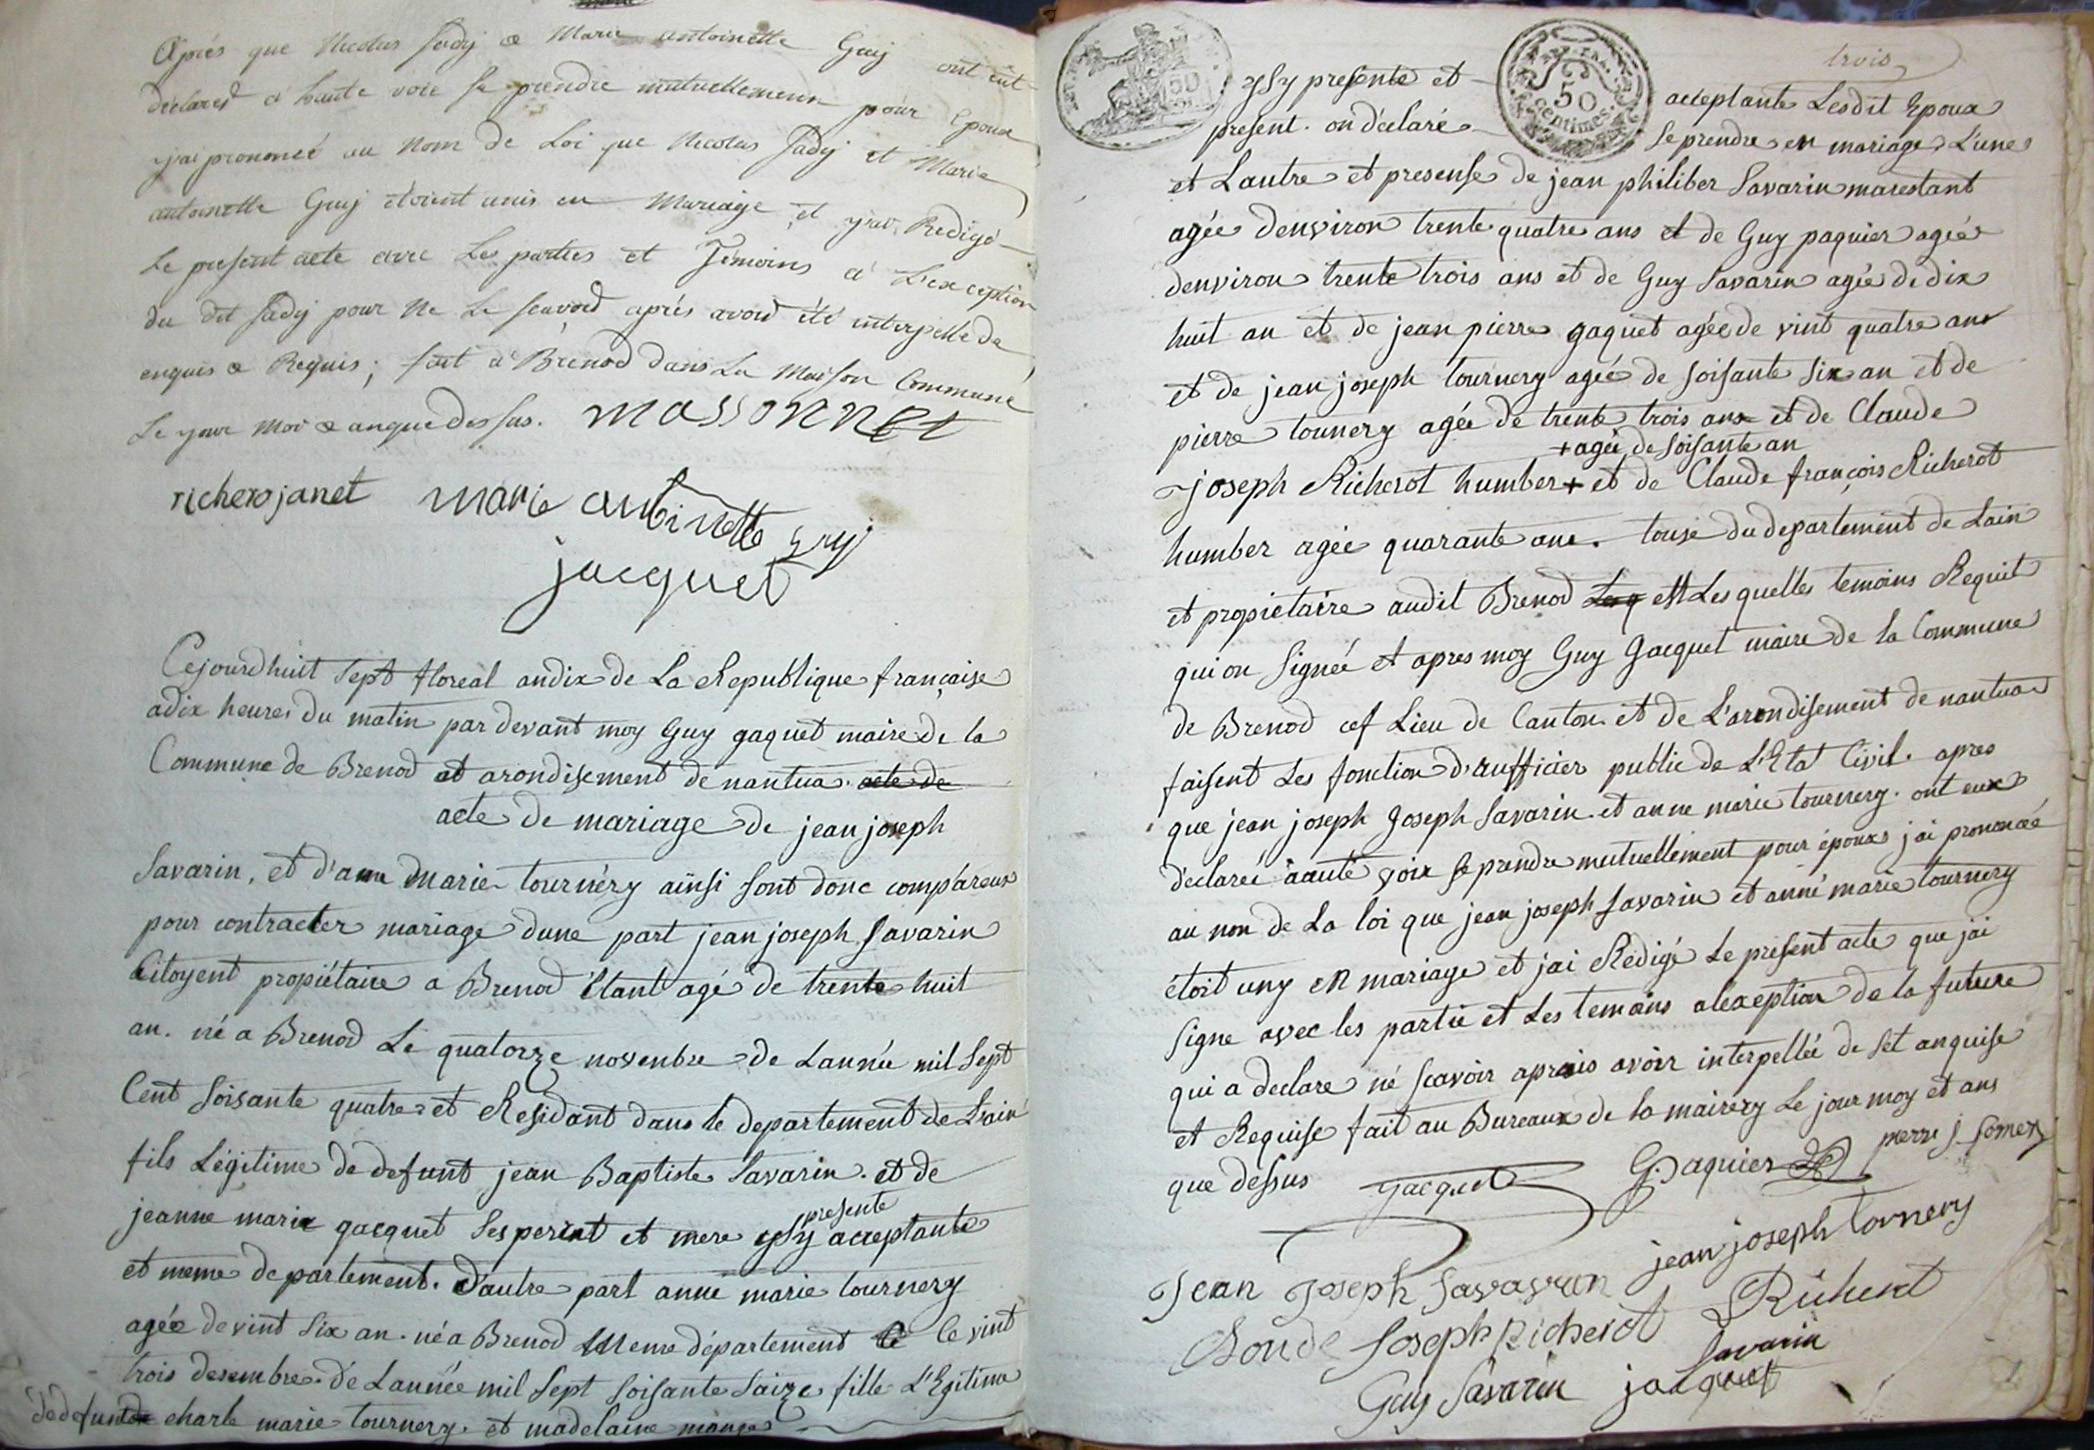 Après que Nicolas Sady & Marie antoinette Guy ont eût
déclaré à haute voie se prendre mutuellement pour Epoux
j'ai prononcé au Nom de Loi que Nicolas Sady et Marie
antoinette Guy étoient unis en Mariage et j'ai Redigé
Le present acte avec Les parties et Témoins à L'exception
du dit Sady pour Ne Le scavoir après avoir été interpellé de
enquis & Requis ; fait à Brenod dans La Maison Commune
Le jour Moi & anque dessus. massonnet
richerojanet marie antoinette guy
jacquet
Cejourdhuit Sept floreal andix de La Republique française
adix heures du matin par devant moy Guy gaquet maire de la
Commune de Brenod et arondisement de nantua. acte de
acte de mariage de jean joseph
Savarin, et d'anne Marie tournery aïnsi sont donc compareux
pour contracter mariage dune part jean joseph Savarin
Citoyent propiétaire a Brenod Etant agé de trente huit
an. né a Brenod Le quatorze novenbre de Lannée mil Sept
Cent Soisante quatre et Residant dans le departement de L'ain
fils Légitime de defunt jean Baptiste Savarin. et de
jeanne marie gacquet Ses perent et mere ysy presente acceptante
et meme departement. D'autre part anne marie tournery
agée de vint Six an. né a Brenod Meme département Le vint
trois desembre de Lannée mil Sept Soisante Saize fille L'Egitime
de defunt charle marie tournery. et madelaine
trois
50
50 centimes
ysy presente et acceptante Lesdit Epoux
present. on déclaré se prendre en mariage L'une
et Lautre et presense de jean philiber Savarin marestant
agée denviron trente quatre ans et de Guy paquier agée
denviron trente trois ans et de Guy Savarin agée de dix
huit an et de jean pierre gaquet agée de vint quatre ans
et de jean joseph tournery agée de soisante six an et de
pierre tounery agée de trente trois ans et de Claude
+ agée de soisante an
joseph Richerot humber + et de Claude françois Richerot
humber agée quarante ans. touse du departement de Lain
et propietaire audit Brenod et Les quelles temoins Requit
qui on Signée et apres moy Guy Gacquet maire de la Commune
de Brenod cef Lieu de Canton et de L'arondisement de nantua
faisent Les fonction d'aufficier public de L'Etat Civil. apres
que jean joseph Joseph Savarin et anne marie tournery. ont eux
déclareé aauté voix se prandre mutuellement pour époux j'ai prononcée
au non de La loi que jean joseph Savarin et anné marie tournery
étoit uny en mariage et j'ai Rédigé Le present acte que j'ai
signe avec les partie et Les temoins alexeption de la future
qui a declare né scavoir aprais avoir interpellée de set anquise
et Requise fait au Bureaux de la mairery Le jour moy et ans
que dessus gacquet G. paquier pierre
jean joseph tornery
Jean Joseph Savavrin
Joseph Richerot Richerot
Savarin
Guy Savarin jacquet